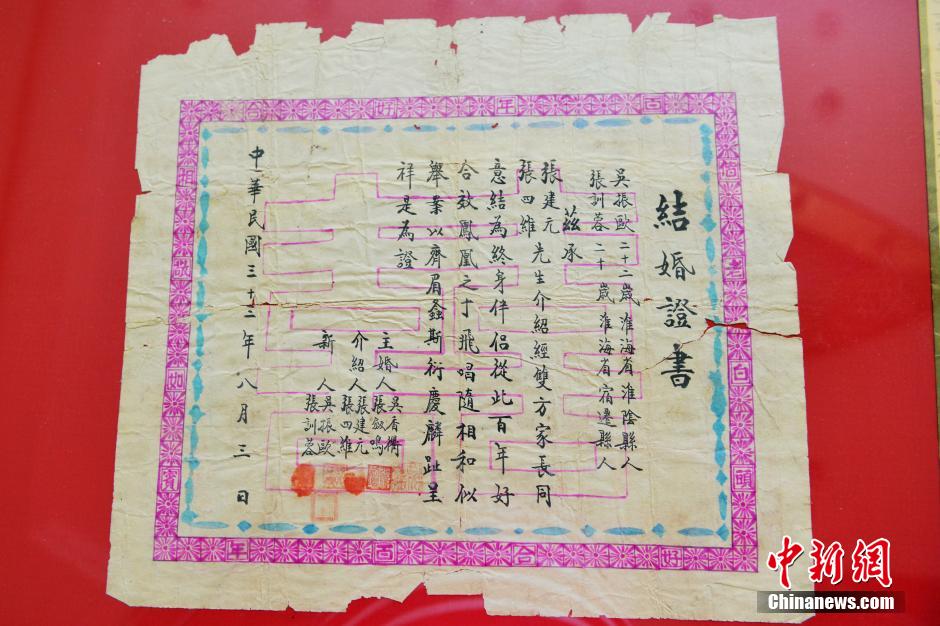 結婚證書
吳振歐二十二歲淮海省淮陰縣人
張訓蓉二十歲淮海省宿遷縣人
茲承
張建元
張四維
先生介紹經雙方家長同
意結為終身伴侶從此百年好
合效鳳凰之于飛唱隨相和似
舉案以齊眉螽斯衍慶麟趾呈
祥是為證
主婚人吳香衢
張啟鳴
介紹人張建元
張四維
新人吳振歐
張訓蓉
中華民國三十二年八月三日
百年好合
偕老白頭
百年合好
相敬如賓
中新網
Chinanews.com